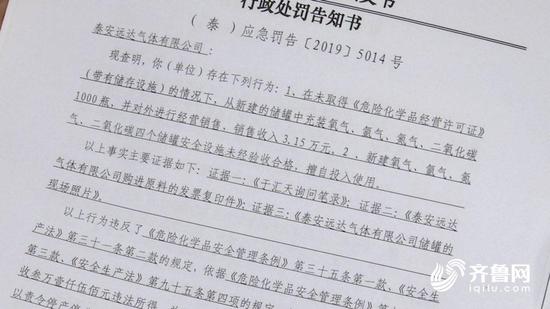 行政处罚告知书
（泰）应急罚告〔2019〕5014号
泰安远达气体有限公司：
现查明，你（单位）存在下列行为：1、在未取得《危险化学品经营许可证》
（带有储存设施）的情况下，从新建的储罐中充装氧气、氩气、氮气、二氧化碳
1000瓶，并对外进行经营销售，销售收入3.15万元。2、新建氧气、氩气、氮
气、二氧化碳四个储罐安全设施未经验收合格，擅自投入使用。
以上事实主要证据如下：证据一：《于汇天询问笔录》；证据二：《泰安远达
气体有限公司购进原料的发票复印件》；证据三：《泰安远达气体有限公司储罐的
现场照片》。
以上行为违反了《危险化学品安全管理条例》第三十五条第一款、《安全生
产法》第三十一条第二款的规定，依据《危险化学品安全管理条例》第
第三款、《安全生产法》第九十五条第四项的规定，
收叁万壹仟伍佰元违法所得，
以责令停产停
齐鲁网
iqilu.com